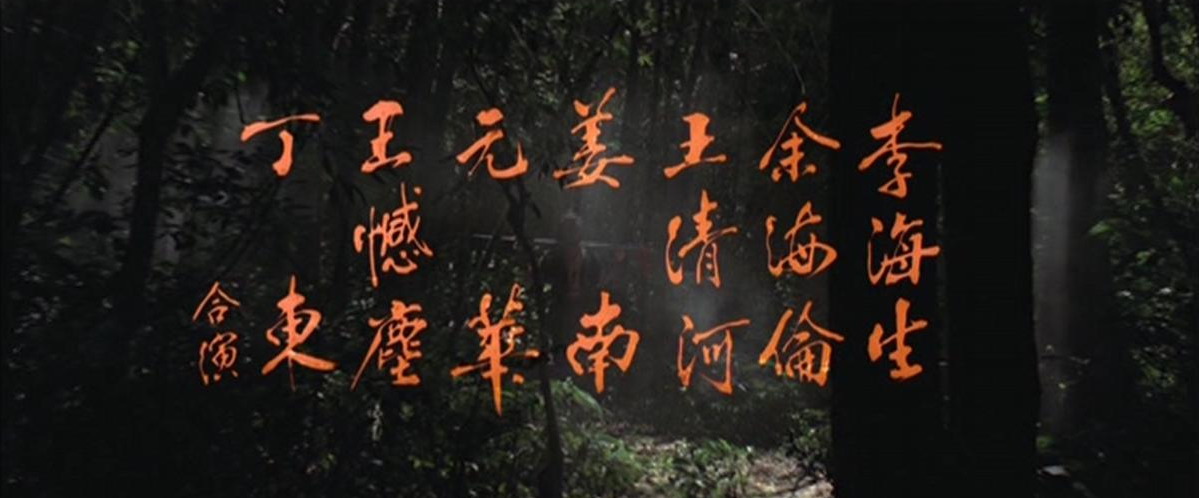 李海生
余海倫
王清河
姜南
元華
王憾塵
丁東
合演